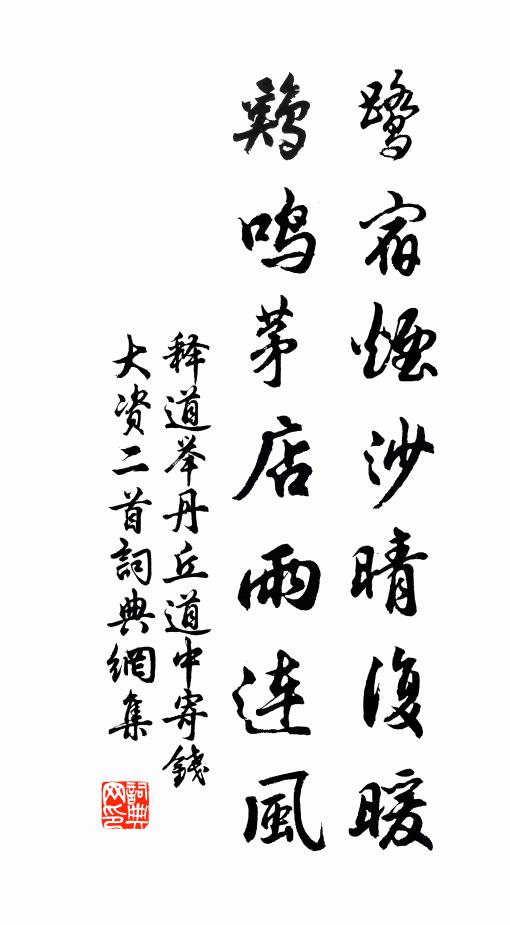 鷺宿煙沙晴復暖
鷄鳴茅店雨连風
释道举丹丘道中寄錢
大资二首詞典網集
詞典
网印